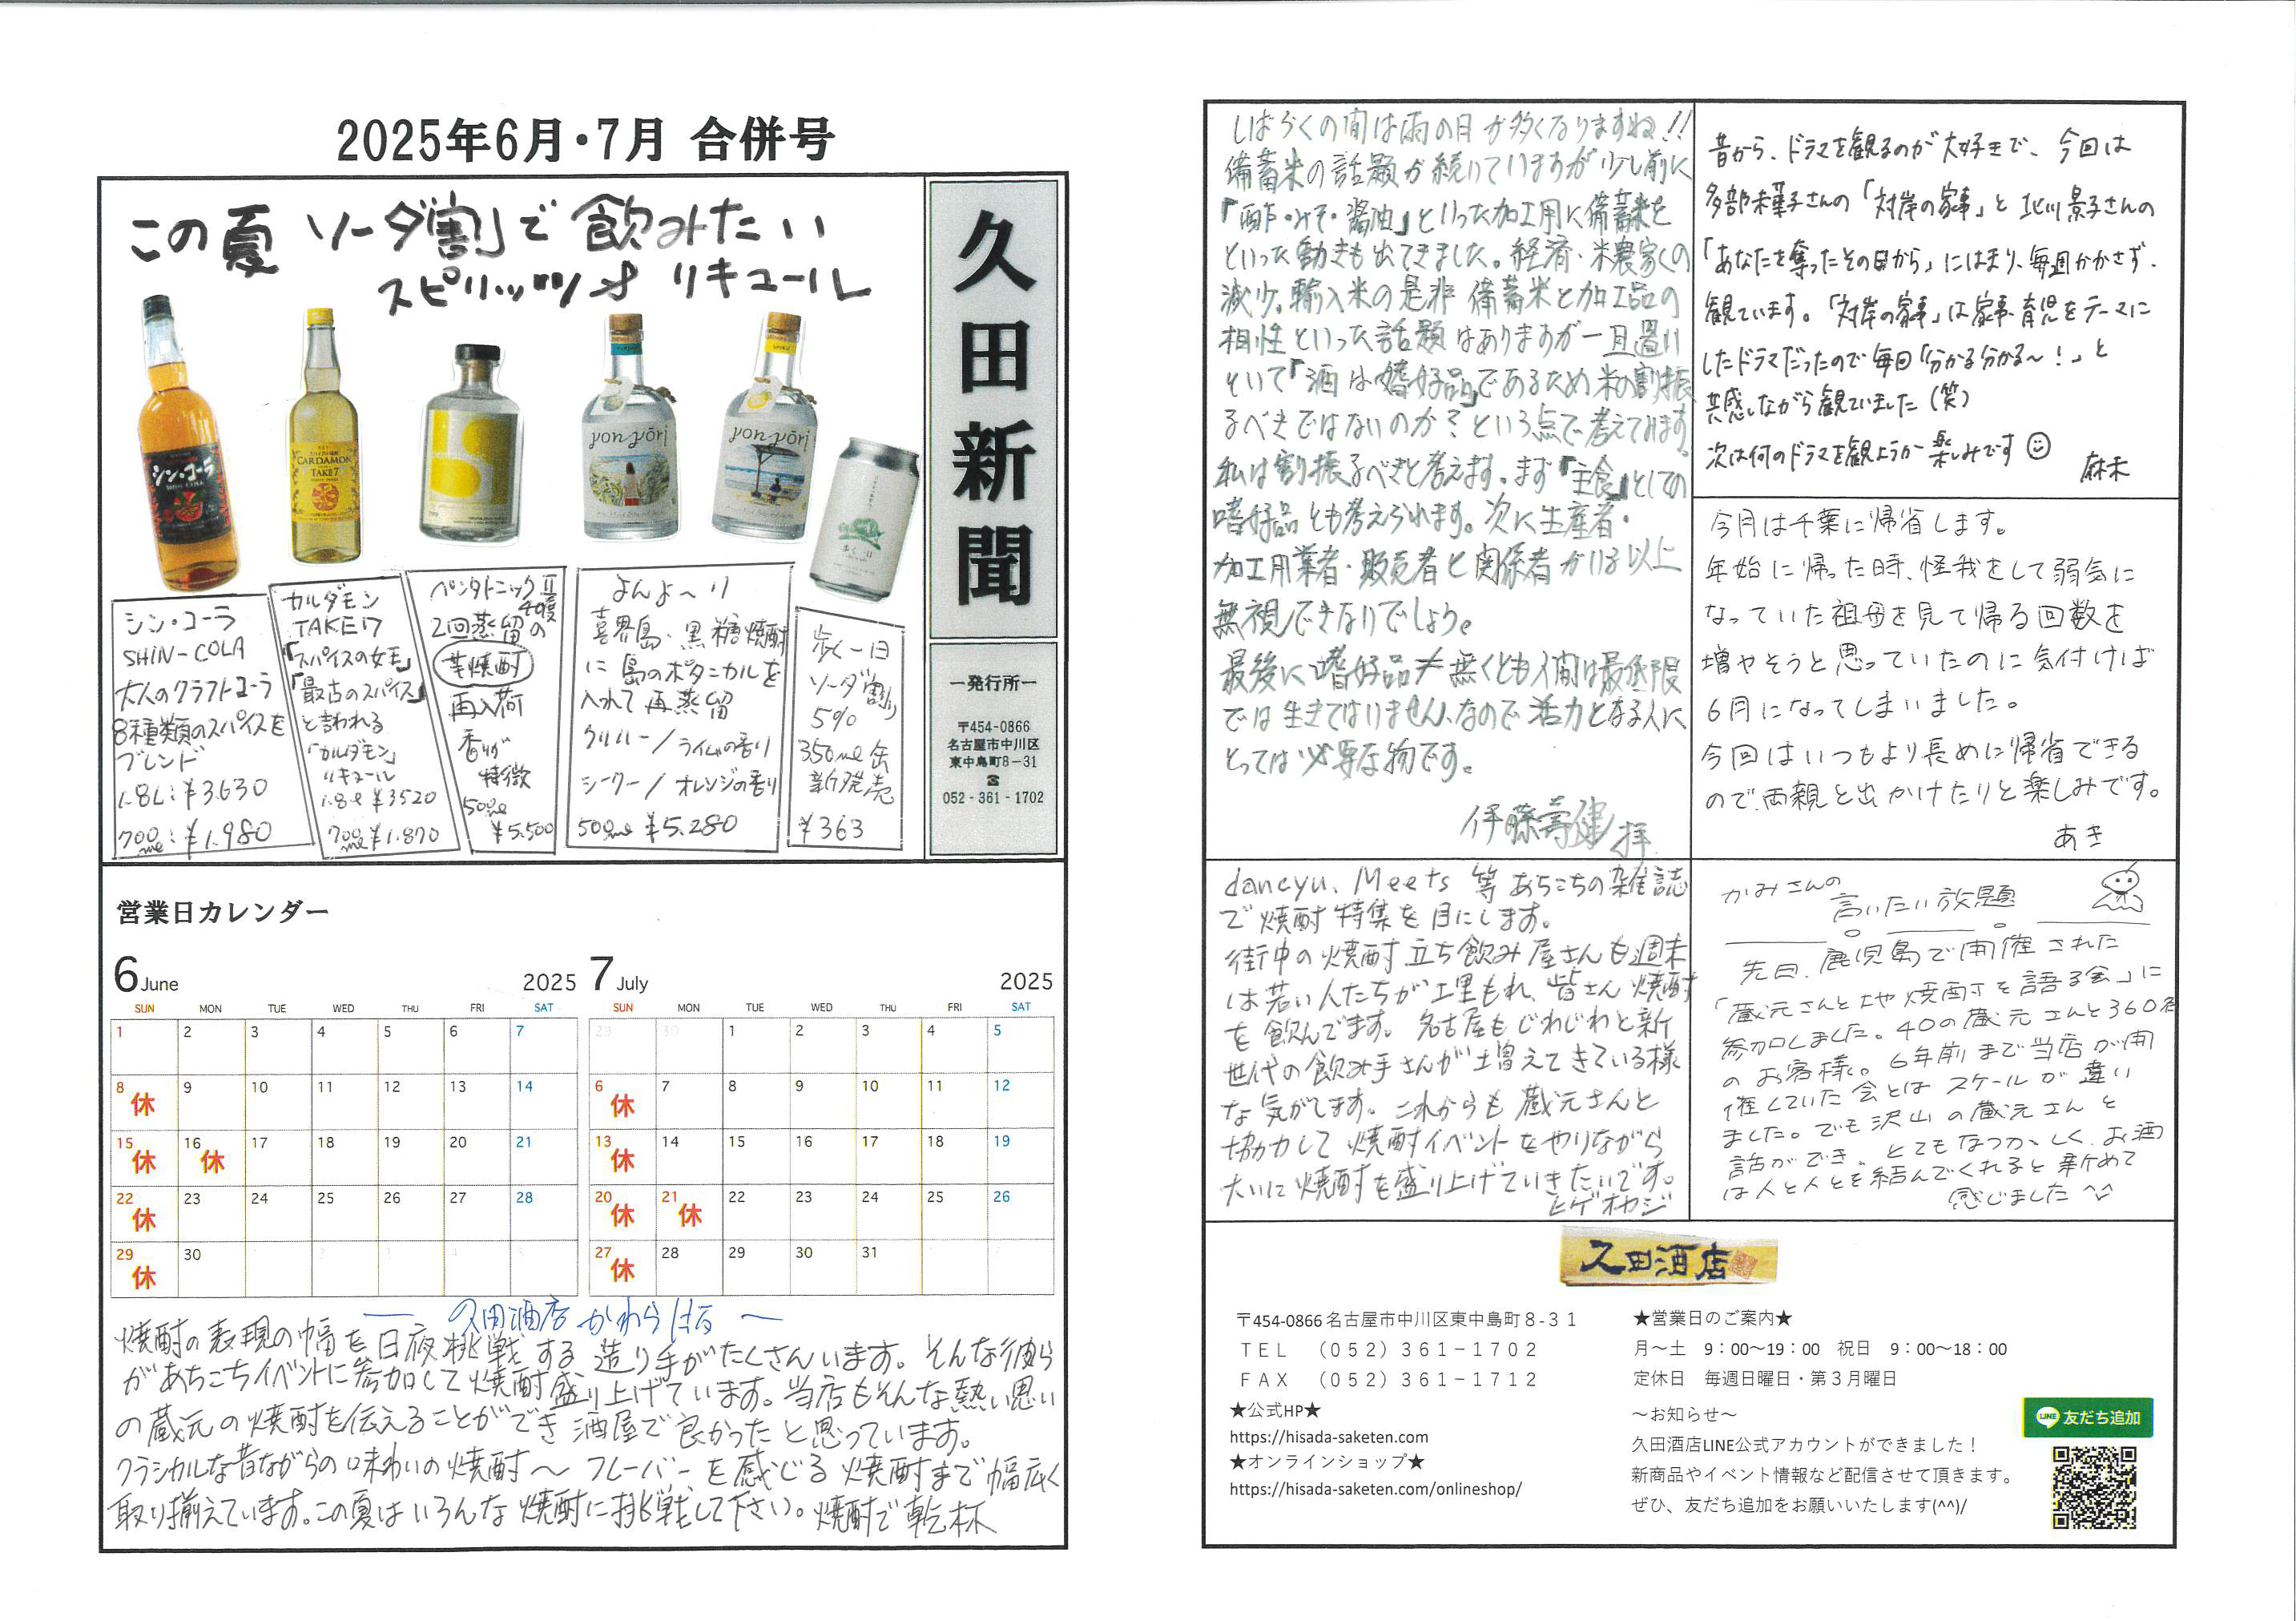 2025年6月・7月 合併号
この夏 ソーダ割で飲みたい
スピリッツ & リキュール
久田新聞
ー発行所ー
〒454-0866
名古屋市中川区
東中島町8－31
☎
052 - 361 - 1702
シン・コーラ
SHIN-COLA
CARDAMON
TAKE7
yon yōri
yon yōri
歩く一日
シン・コーラ
SHIN-COLA
大人のクラフトコーラ
8種類のスパイスを
ブレンド
1.8L：¥3,630
700ml：¥1,980
カルダモン
TAKE7
「スパイスの女王」
「最古のスパイス」
と言われる
「カルダモン」
リキュール
1.8ℓ ¥3520
700ml ¥1,870
ペンタトニックⅡ
40度
2回蒸留の
芋焼酎
再入荷
香りが
特徴
500ml
¥5,500
よんよ〜り
喜界島・黒糖焼酎
に島のボタニカルを
入れて再蒸留
クリハー／ライムの香り
シークー／オレンジの香り
500ml ¥5,280
歩く一日
ソーダ割り
5%
350ml缶
新発売
¥363
営業日カレンダー
6 June 2025
SUN MON TUE WED THU FRI SAT
1 2 3 4 5 6 7
8 休 9 10 11 12 13 14
15 休 16 休 17 18 19 20 21
22 休 23 24 25 26 27 28
29 休 30
7 July 2025
SUN MON TUE WED THU FRI SAT
29 30 1 2 3 4 5
6 休 7 8 9 10 11 12
13 休 14 15 16 17 18 19
20 休 21 休 22 23 24 25 26
27 休 28 29 30 31
― 久田酒店かわら版 〜
焼酎の表現の幅を日夜挑戦する造り手がたくさんいます。そんな彼ら
があちこちイベントに参加して焼酎盛り上げています。当店もそんな熱い思い
の蔵元の焼酎を伝えることができ酒屋で良かったと思っています。
クラシカルな昔ながらの味わいの焼酎〜フレーバーを感じる焼酎まで幅広く
取り揃えています。この夏はいろんな焼酎に挑戦して下さい。焼酎で乾杯
しばらくの間は雨の日が多くなりますね!!
備蓄米の話題が続いていますが少し前に
『酢・みそ・醤油』といった加工用に備蓄米を
といった動きも出てきました。経済・米農家くの
減少。輸入米の是非 備蓄米と加工品の
相性といった話題はありますが一旦置い
といて『酒は嗜好品』であるため米の割振
るべきではないのか？という点で考えてみます。
私は割振るべきと考えます。まず『主食』としての
嗜好品とも考えられます。次に生産者・
加工用業者・販売者と関係者がいる以上
無視できないでしょう。
最後に嗜好品≠無くとも人間は最低限
では生きてはいません、なので活力となる人に
とっては必要な物です。
伊藤壽健 拝
昔から、ドラマを観るのが大好きで、今回は
多部未華子さんの「対岸の家事」と北川景子さんの
「あなたを奪ったその日から」にはまり、毎週かかさず、
観ています。「対岸の家事」は家事・育児をテーマに
したドラマだったので毎回「分かる分かる〜！」と
共感しながら観ていました（笑）
次は何のドラマを観ようか楽しみです☺
麻未
今月は千葉に帰省します。
年始に帰った時、怪我をして弱気に
なっていた祖母を見て帰る回数を
増やそうと思っていたのに気付けば
6月になってしまいました。
今回はいつもより長めに帰省できる
ので、両親と出かけたりと楽しみです。
あき
dancyu、Meets 等 あちこちの雑誌
で焼酎特集を目にします。
街中の焼酎立ち飲み屋さんも週末
は若い人たちが埋もれ、皆さん焼酎
を飲んでます。名古屋もじわじわと新
世代の飲み手さんが増えてきている様
な気がします。これからも蔵元さんと
協力して焼酎イベントをやりながら
大いに焼酎を盛り上げていきたいです。
ヒゲオヤジ
かみさんの
言いたい放題
先日、鹿児島で開催された
「蔵元さんと地や焼酎を語る会」に
参加しました。40の蔵元さんと360名
のお客様。6年前まで当店が開
催していた会とはスケールが違い
ました。でも沢山の蔵元さんと
話ができ、とてもなつかしく、お酒
は人と人とを結んでくれると新めて
感じました ^^
久田酒店
〒454-0866 名古屋市中川区東中島町８-３１
ＴＥＬ （０５２）３６１－１７０２
ＦＡＸ （０５２）３６１－１７１２
★公式HP★
https://hisada-saketen.com
★オンラインショップ★
https://hisada-saketen.com/onlineshop/
★営業日のご案内★
月〜土 9：00〜19：00 祝日 9：00〜18：00
定休日 毎週日曜日・第３月曜日
〜お知らせ〜
久田酒店LINE公式アカウントができました！
新商品やイベント情報など配信させて頂きます。
ぜひ、友だち追加をお願いいたします(^^)/
LINE 友だち追加